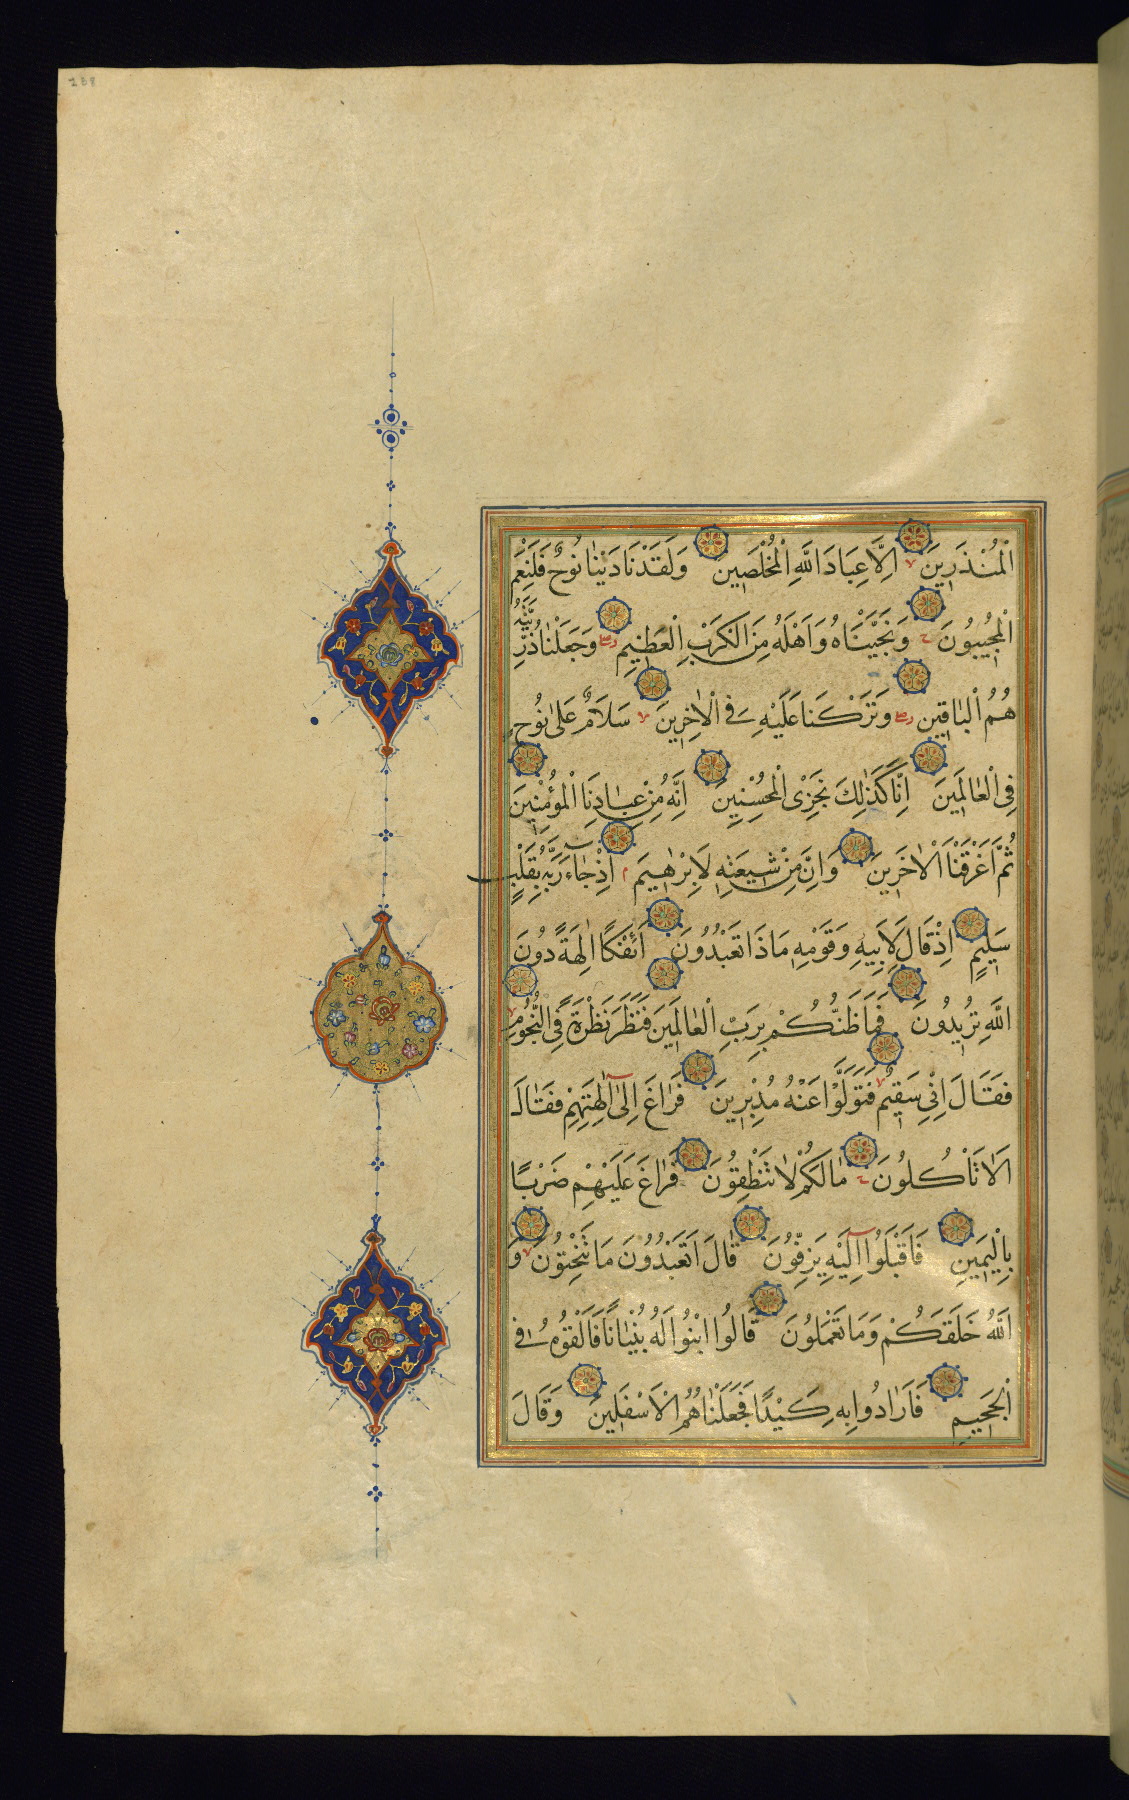 الْمُنْذَرِينَ اِلَّا عِبَادَ اللّٰهِ الْمُخْلَصِينَ وَلَقَدْ نَادَيٰنَا نُوحٌ فَلَنِعْمَ
الْمُجِيبُونَ وَنَجَّيْنَاهُ وَاَهْلَهُ مِنَ الْكَرْبِ الْعَظِيمِ وَجَعَلْنَا ذُرِّيَّتَهُ
هُمُ الْبَاقِينَ وَتَرَكْنَا عَلَيْهِ فِى الْاٰخِرِينَ سَلَامٌ عَلٰى نُوحٍ
فِى الْعَالَمِينَ اِنَّا كَذٰلِكَ نَجْزِى الْمُحْسِنِينَ اِنَّهُ مِنْ عِبَادِنَا الْمُؤْمِنِينَ
ثُمَّ اَغْرَقْنَا الْاٰخَرِينَ وَاِنَّ مِنْ شِيعَتِهِ لَاِبْرٰهِيمَ اِذْ جَاءَ رَبَّهُ بِقَلْبٍ
سَلِيمٍ اِذْ قَالَ لِاَبِيهِ وَقَوْمِهِ مَاذَا تَعْبُدُونَ اَئِفْكًا اٰلِهَةً دُونَ
اللّٰهِ تُرِيدُونَ فَمَا ظَنُّكُمْ بِرَبِّ الْعَالَمِينَ فَنَظَرَ نَظْرَةً فِى النُّجُومِ
فَقَالَ اِنِّى سَقِيمٌ فَتَوَلَّوْا عَنْهُ مُدْبِرِينَ فَرَاغَ اِلٰى اٰلِهَتِهِمْ فَقَالَ
اَلَا تَاْكُلُونَ مَالَكُمْ لَا تَنْطِقُونَ فَرَاغَ عَلَيْهِمْ ضَرْبًا
بِالْيَمِينِ فَاَقْبَلُوا اِلَيْهِ يَزِفُّونَ قَالَ اَتَعْبُدُونَ مَا تَنْحِتُونَ وَ
اللّٰهُ خَلَقَكُمْ وَمَا تَعْمَلُونَ قَالُوا ابْنُوا لَهُ بُنْيَانًا فَاَلْقُوهُ فِى
الْجَحِيمِ فَاَرَادُوا بِهِ كَيْدًا فَجَعَلْنَاهُمُ الْاَسْفَلِينَ وَقَالَ